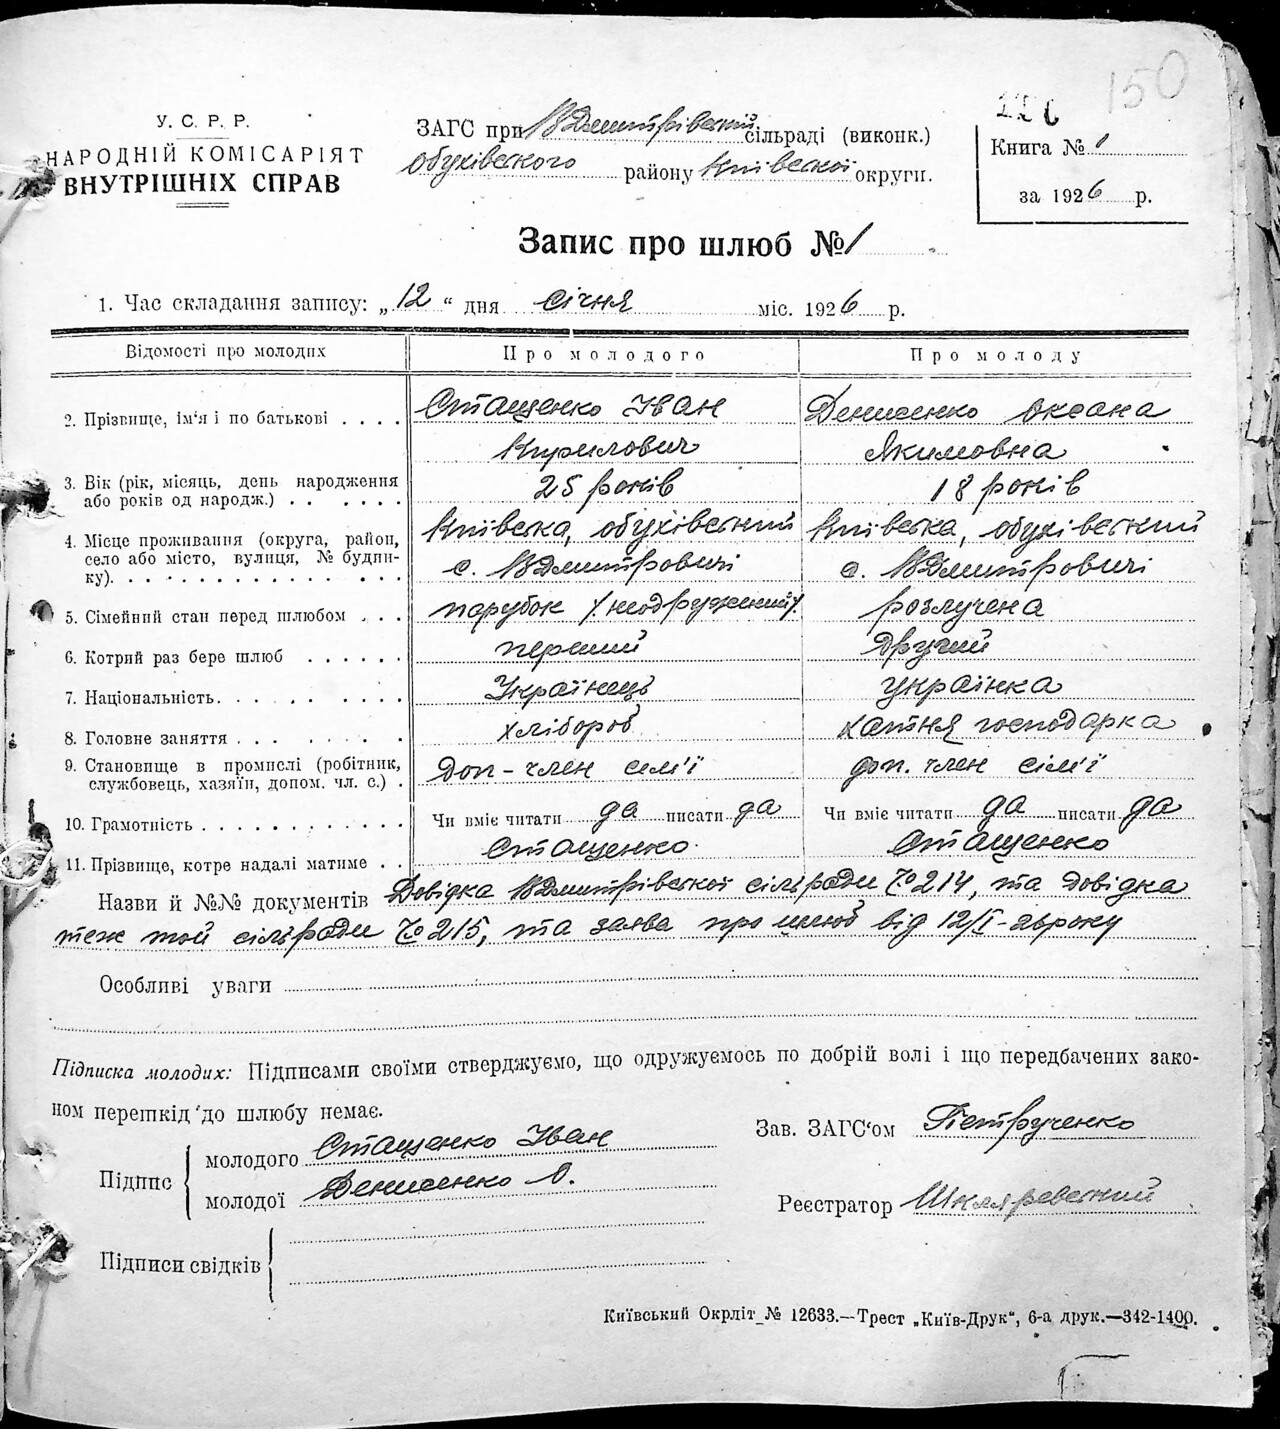 150
У. С. Р. Р.
НАРОДНІЙ КОМІСАРІЯТ
ВНУТРІШНІХ СПРАВ
ЗАГС при ВДмитрівській сільраді (виконк.)
Обухівського району Київської округи.
Книга № 1
за 1926 р.
Запис про шлюб № 1
1. Час складання запису: „12“ дня січня міс. 1926 р.
Відомості про молодих Про молодого Про молоду
2. Прізвище, ім'я і по батькові . . . . Стащенко Іван Денисенко Оксана
Кирилович Якимовна
3. Вік (рік, місяць, день народження або років од народж.) . . . . . 25 років 18 років
4. Місце проживання (округа, район, село або місто, вулиця, № будинку). Київська, обухівський Київська, обухівский
с. ВДмитровичі с. ВДмитровичі
5. Сімейний стан перед шлюбом . . . парубок /неодружений/ розлучена
6. Котрий раз бере шлюб . . . . . . перший другий
7. Національність. . . . . . . . . Українець українка
8. Головне заняття . . . . . . . . хлібороб хатня господарка
9. Становище в промислі (робітник, службовець, хазяїн, допом. чл. с.) . доп-член сім'ї доп. член сім'ї
10. Грамотність . . . . . . . . . . . . Чи вміє читати да писати да Чи вміє читати да писати да
11. Прізвище, котре надалі матиме . . Стащенко Стащенко
Назви й №№ документів Довідка ВДмитрівської сільради № 214, та довідка
теж той сільради № 215, та заява про шлюб від 12/I-26 року
Особливі уваги
Підписка молодих: Підписами своїми стверджуємо, що одружуємось по добрій волі і що передбачених зако-
ном перешкід до шлюбу немає.
Зав. ЗАГС'ом Петрученко
Підпис молодого Стащенко Іван
молодої Денисенко О.
Реєстратор Шкляревський
Підписи свідків
Київський Окрліт № 12633.—Трест „Київ-Друк“, 6-а друк.—342-1400.